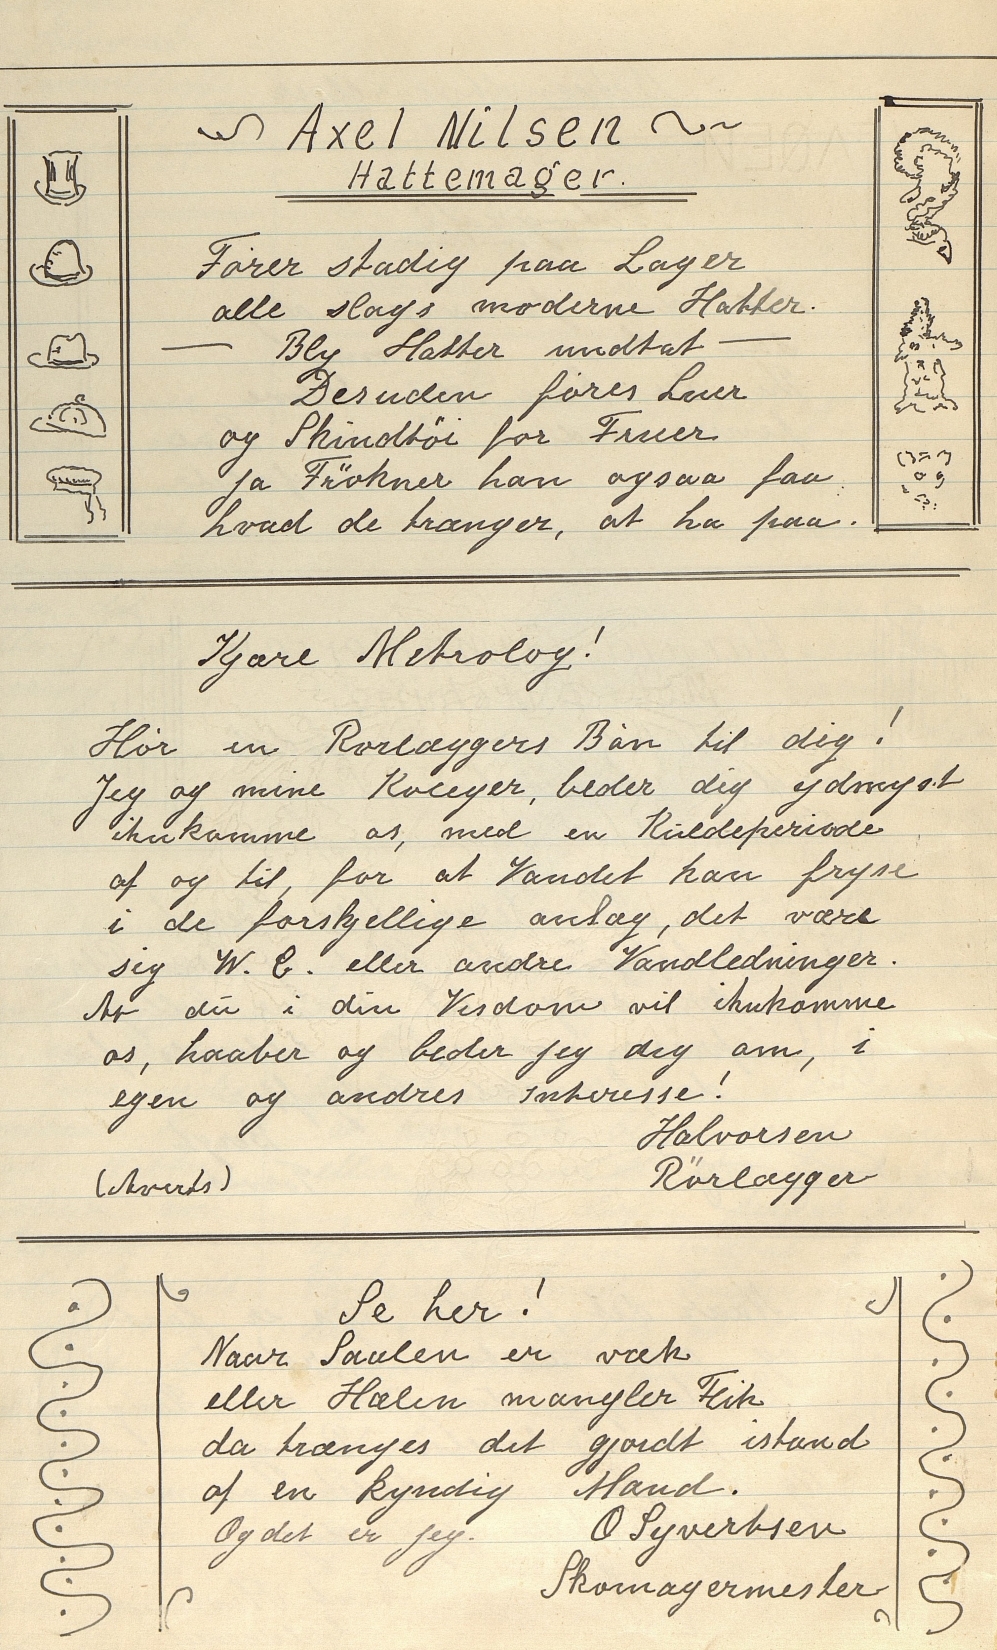 Axel Nilsen
Hattemager.
Fører stadig paa Lager
alle slags moderne Hatter.
— Bly Hatter undtat —
Desuden føres Luer
og Skindtöi for Fruer
ja Frökner kan ogsaa faa
hvad de trænger, at ha paa.
Kjære Metrolog!
Hør en Rørlæggers Bøn til dig!
Jeg og mine Koleger, beder dig ydmygst
ihukomme os, med en Kuldeperiode
af og til, for at Vandet kan fryse
i de forskjellige anlæg, det være
sig W. C. eller andre Vandledninger.
At du i din Visdom vil ihukomme
os, haaber og beder jeg dig om, i
egen og andres interesse!
Halvorsen
Rörlægger
(Averts)
Se her!
Naar Saalen er væk
eller Hælen mangler Flik
da trænges det gjordt istand
af en kyndig Mand.
Og det er jeg. O Syvertsen
Skomagermester